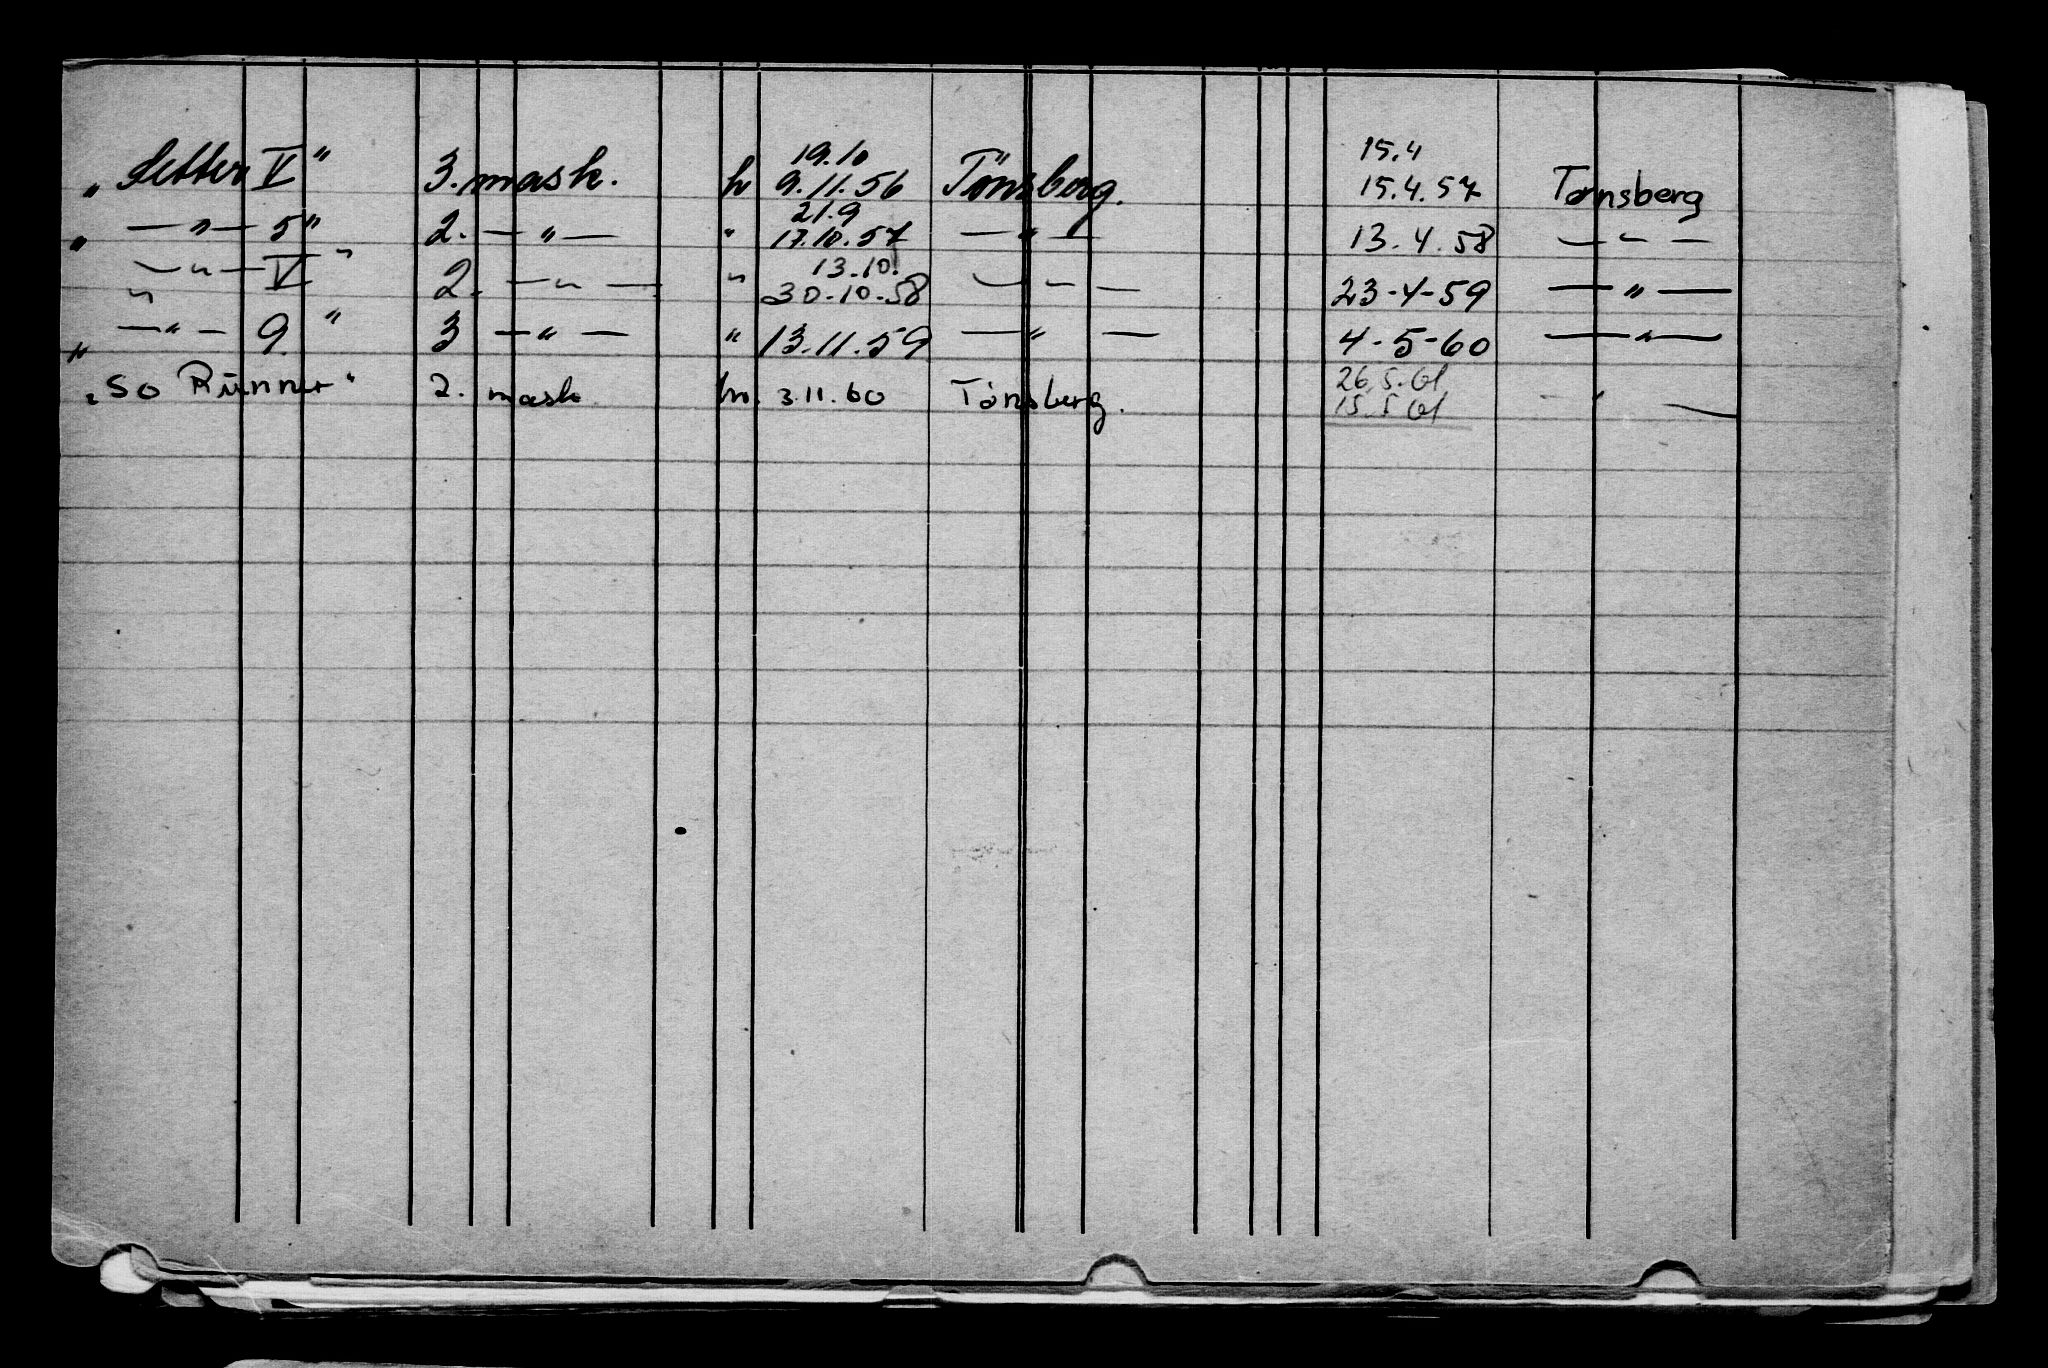 19.10 15.4
„Setter V“ 3. mask. h 9.11.56 Tönsberg. 15.4.57 Tønsberg
21.9
„ —〃— 5“ 2. —〃— 〃 17.10.57 —〃— 13.4.58 —〃—
13.10.
„ —〃— V“ 2. —〃— 〃 30-10-58 —〃— 23-4-59 —〃—
„ —〃— 9.“ 3 —〃— 〃 13.11.59 —〃— 4-5-60 —〃—
26.5.61
„So Runner“ 2. mask hv. 3.11.60 Tønsberg. 15.5.61 —〃—